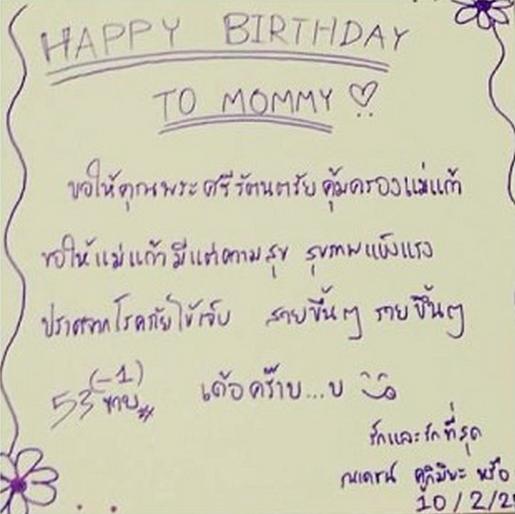 HAPPY BIRTHDAY
TO MOMMY ♡
ขอให้คุณพระศรีรัตนตรัยคุ้มครองแม่แก้ว
ขอให้แม่แก้วมีแต่ความสุข สุขภาพแข็งแรง
ปราศจากโรคภัยไข้เจ็บ สวยขึ้นๆ รวยขึ้นๆ
(-1)
53 เด้อคร๊าบ...บ
รักและรักที่สุด
ณเดชน์ คูกิมิยะ หรือ
10/2/2